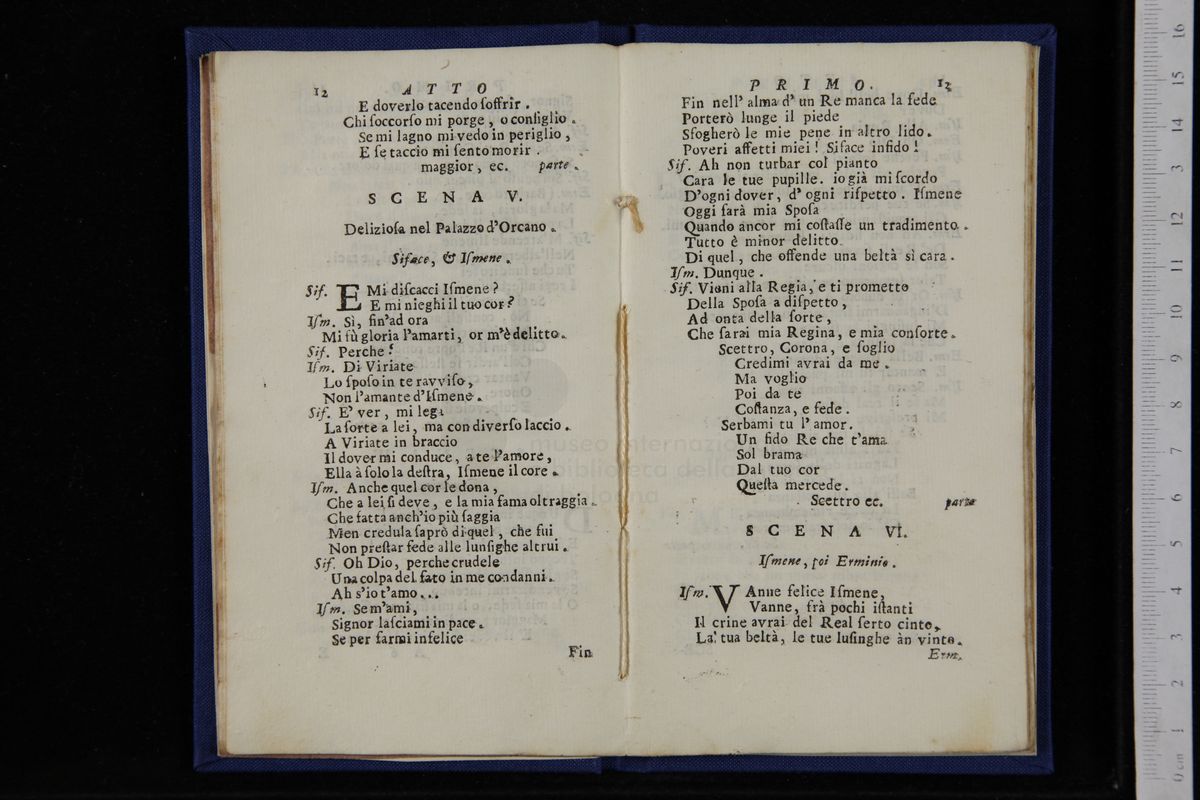 12 ATTO
E doverlo tacendo ſoffrir .
Chi ſoccorſo mi porge , o conſiglio .
Se mi lagno mi vedo in periglio ,
E ſe taccio mi ſento morir .
maggior , ec. parte .
SCENA V.
Delizioſa nel Palazzo d'Orcano .
Siface, & Iſmene .
Sif. E Mi diſcacci Iſmene ?
E mi nieghi il tuo cor ?
Iſm. Sì, fin'ad ora
Mi fù gloria l'amarti, or m'è delitto.
Sif. Perche ?
Iſm. Di Viriate
Lo ſpoſo in te ravviſo,
Non l'amante d'Iſmene .
Sif. E' ver , mi lega
La ſorte a lei, ma con diverſo laccio .
A Viriate in braccio
Il dover mi conduce, a te l'amore,
Ella à ſolo la deſtra, Iſmene il core .
Iſm. Anche quel cor le dona ,
Che a lei ſi deve , e la mia fama oltraggia .
Che fatta anch'io più ſaggia
Men credula ſaprò di quel , che fui
Non preſtar fede alle luſighe altrui .
Sif. Oh Dio, perche crudele
Una colpa del fato in me condanni .
Ah s'io t'amo...
Iſm. Se m'ami,
Signor laſciami in pace .
Se per farmi infelice
Fin
PRIMO. 13
Fin nell' alma d' un Re manca la fede
Porterò lunge il piede
Sfogherò le mie pene in altro lido.
Poveri affetti miei ! Siface infido !
Sif. Ah non turbar col pianto
Cara le tue pupille. io già mi ſcordo
D'ogni dover, d' ogni riſpetto . Iſmene
Oggi ſarà mia Spoſa
Quando ancor mi coſtaſſe un tradimento .
Tutto è minor delitto
Di quel , che offende una beltà sì cara .
Iſm. Dunque .
Sif. Vieni alla Regia, e ti prometto
Della Spoſa a diſpetto ,
Ad onta della ſorte ,
Che ſarai mia Regina, e mia conſorte.
Scettro, Corona, e ſoglio
Credimi avrai da me .
Ma voglio
Poi da te
Coſtanza, e fede .
Serbami tu l' amor.
Un fido Re che t'ama
Sol brama
Dal tuo cor
Queſta mercede.
Scettro ec. parte
SCENA VI.
Iſmene, poi Erminio .
Iſm. VAnne felice Iſmene,
Vanne, frà pochi iſtanti
Il crine avrai del Real ſerto cinto,
La tua beltà, le tue luſinghe àn vinto.
Erm.
museo internazio
biblioteca della